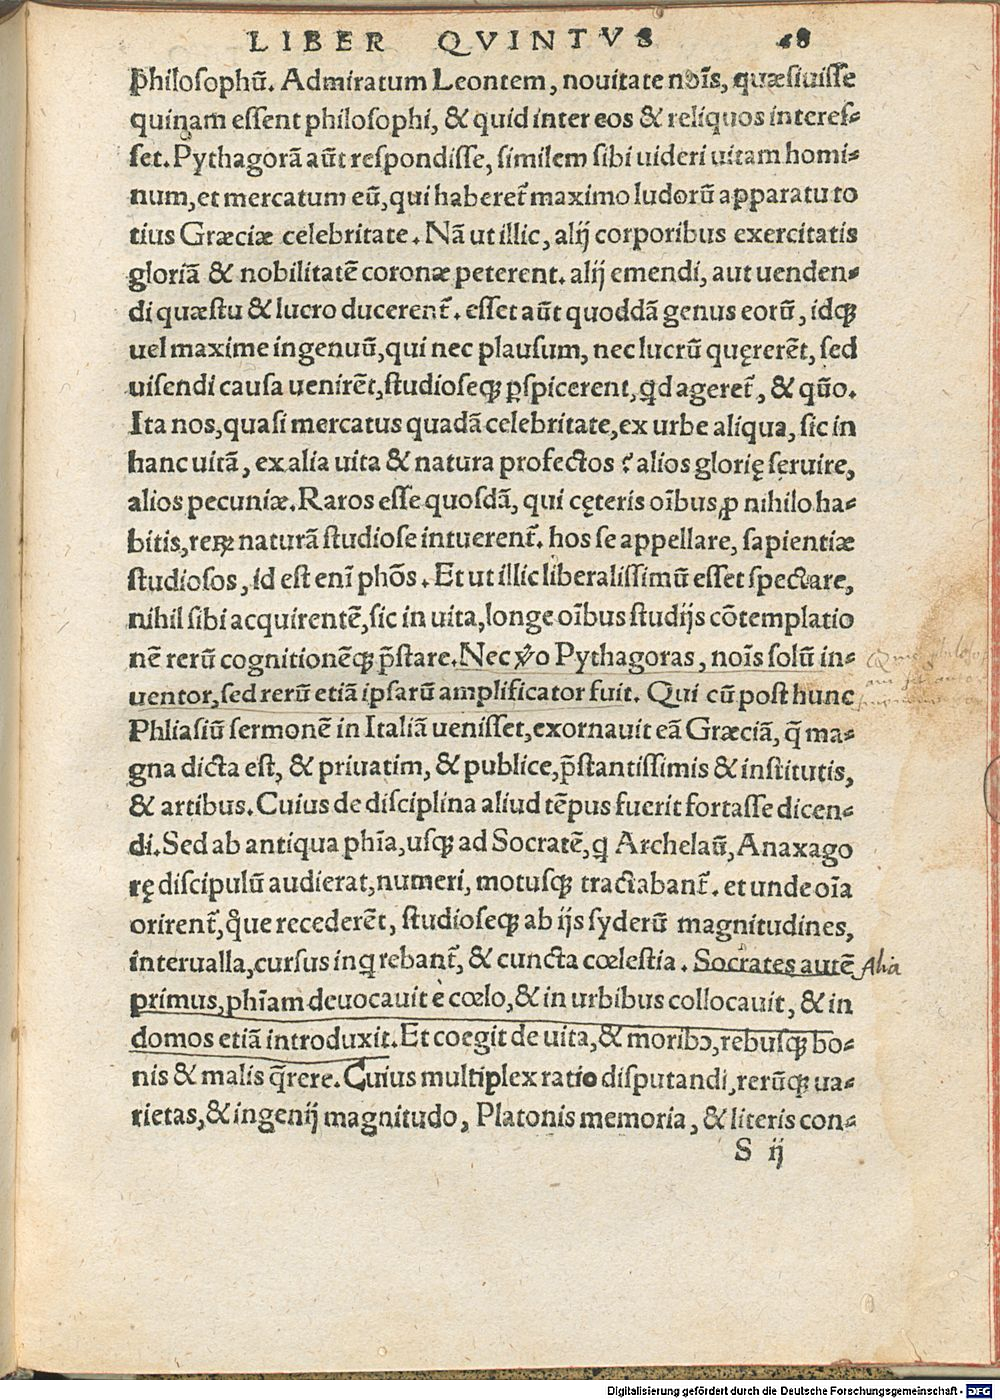 LIBER QVINTVS 68
philosophū. Admiratum Leontem, nouitate noīs, quæsiuisse
quinam essent philosophi, & quid inter eos & reliquos interes⸗
set. Pythagorā aūt respondisse, similem sibi uideri uitam homi⸗
num, et mercatum eū, qui haberet᷑ maximo ludorū apparatu to
tius Græciæ celebritate. Nā ut illic, alij corporibus exercitatis
gloriā & nobilitatē coronæ peterent. alij emendi, aut uenden⸗
di quæstu & lucro ducerent᷑. esset aūt quoddā genus eorū, idq́ꝫ
uel maxime ingenuū, qui nec plausum, nec lucrū quęrerēt, sed
uisendi causa uenirēt, studioseqꝫ ꝑspicerent, qd ageret᷑, & quō.
Ita nos, quasi mercatus quadā celebritate, ex urbe aliqua, sic in
hanc uitā, ex alia uita & natura profectos : alios glorię seruire,
alios pecuniæ. Raros esse quosdā, qui cęteris oībus ꝓ nihilo ha⸗
bitis, reꝝ naturā studiose intuerent᷑. hos se appellare, sapientiæ
studiosos, id est enī phōs. Et ut illic liberalissimū esset spectare,
nihil sibi acquirentē, sic in uita, longe oībus studijs cōtemplatio
nē rerū cognitionēqꝫ p̄stare. Nec ṽo Pythagoras, noīs solū in⸗
uentor, sed rerū etiā ipsarū amplificator fuit. Qui cū post hunc
Phliasiū sermonē in Italiā uenisset, exornauit eā Græciā, q̄ ma⸗
gna dicta est, & priuatim, & publice, p̄stantissimis & institutis,
& artibus. Cuius de disciplina aliud tēpus fuerit fortasse dicen⸗
di. Sed ab antiqua phīa, usqꝫ ad Socratē, q Archelaū, Anaxago
rę discipulū audierat, numeri, motusqꝫ tractabant᷑. et unde oīa
orirent᷑, q̊ue recederēt, studioseqꝫ ab ijs syderū magnitudines,
interualla, cursus inqrebant᷑, & cuncta cœlestia. Socrates autē
Alia
primus, phīam deuocauit è cœlo, & in urbibus collocauit, & in
domos etiā introduxit. Et coegit de uita, & moribꝰ, rebusqꝫ bo⸗
nis & malis q̄rere. Cuius multiplex ratio disputandi, rerūqꝫ ua⸗
rietas, & ingenij magnitudo, Platonis memoria, & literis con⸗
S ij
Digitalisierung gefördert durch die Deutsche Forschungsgemeinschaft - DFG